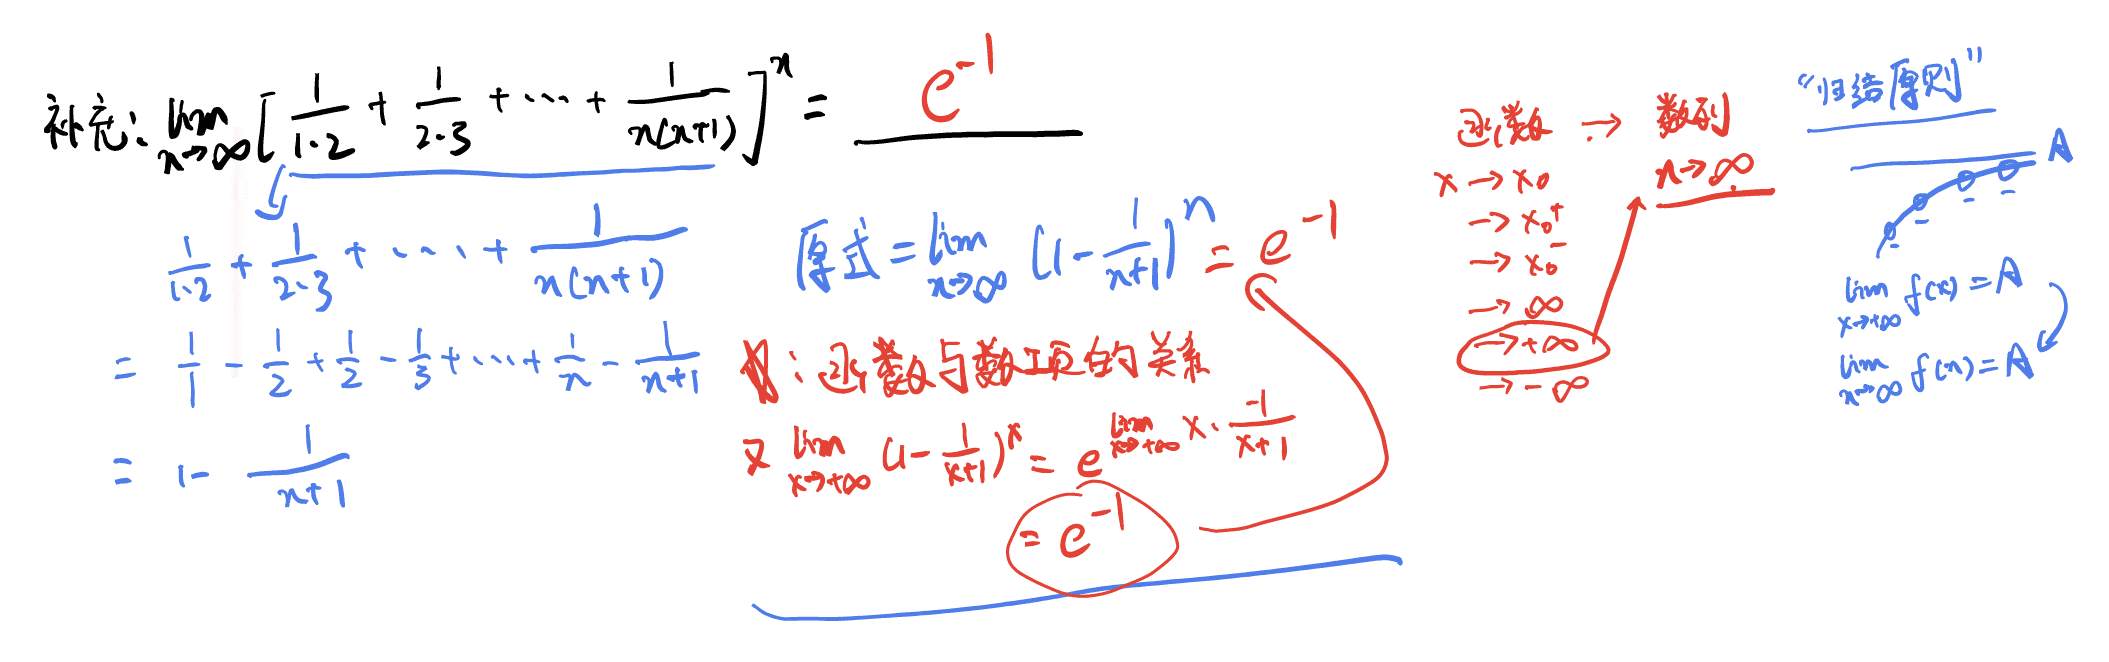 补充: lim n→∞ [1/(1·2) + 1/(2·3) + ⋯ + 1/(n(n+1))]^n = e^{-1}
1/(1·2) + 1/(2·3) + ⋯ + 1/(n(n+1))
= 1/1 - 1/2 + 1/2 - 1/3 + ⋯ + 1/n - 1/(n+1)
= 1 - 1/(n+1)
原式 = lim n→∞ (1 - 1/(n+1))^n = e^{-1}
: 函数与数项的关系
又 lim x→+∞ (1 - 1/(x+1))^x = e^{lim x→+∞ x· -1/(x+1)}
= e^{-1}
函数 → 数列
x → x₀ n → ∞
→ x₀⁺
→ x₀⁻
→ ∞
→ +∞
→ -∞
“归结原则”
A
lim x→+∞ f(x) = A
lim n→∞ f(n) = A